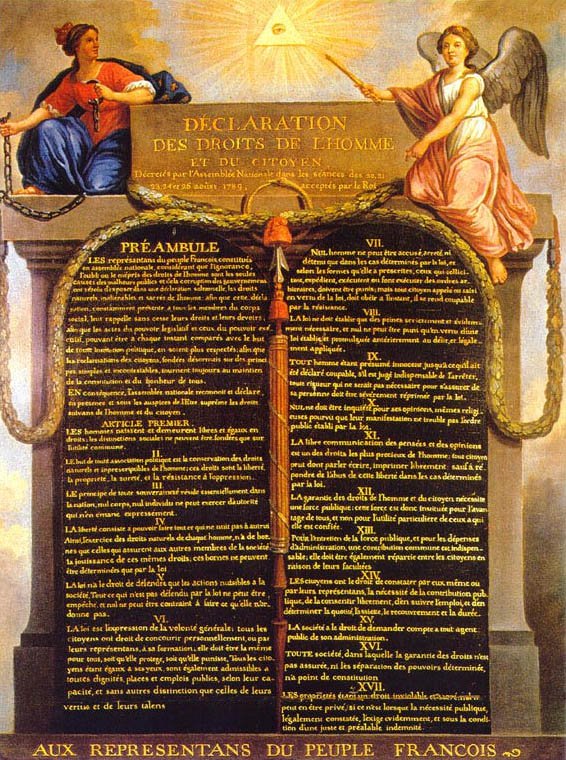 DÉCLARATION
DES DROITS DE L'HOMME
ET DU CITOYEN,
Décretés par l'Assemblée Nationale dans les séances des 20, 21
23, 24 et 26 août 1789, acceptés par le Roi
PRÉAMBULE
LES représentans du peuple François, constitués
en assemblée nationale, considérant que l'ignorance,
l'oubli ou le mépris des droits de l'homme sont les seules
causes des malheurs publics et de la corruption des gouvernemens
ont résolu d'exposer dans une déclaration solemnelle, les droits
naturels, inaliénables et sacrés de l'homme; afin que cette décla
ration, constamment présente à tous les membres du corps
social, leur rappelle sans cesse leurs droits et leurs devoirs;
afin que les actes du pouvoir législatif et ceux du pouvoir exé
cutif, pouvant être à chaque instant comparés avec le but
de toute institution politique, en soient plus respectés; afin que
les réclamations des citoyens, fondées désormais sur des princi
pes simples et incontestables, tournent toujours au maintien
de la constitution et du bonheur de tous.
EN conséquence, l'assemblée nationale reconnoit et déclare,
en présence et sous les auspices de l'Etre suprême les droits
suivans de l'homme et du citoyen.
ARTICLE PREMIER.
LES hommes naissent et demeurent libres et égaux en
droits; les distinctions sociales ne peuvent être fondées que sur
l'utilité commune.
II.
LE but de toute association politique est la conservation des droits
naturels et imprescriptibles de l'homme; ces droits sont la liberté,
la propriété, la sureté, et la résistance à l'oppression.
III.
LE principe de toute souveraineté réside essentiellement dans
la nation, nul corps, nul individu ne peut exercer d'autorité
qui n'en émane expressément.
IV.
LA liberté consiste à pouvoir faire tout ce qui ne nuit pas à autrui
Ainsi, l'exercice des droits naturels de chaque homme, n'a de bor
nes que celles qui assurent aux autres membres de la société
la jouissance de ces mêmes droits; ces bornes ne peuvent
être déterminées que par la loi
V.
LA loi n'a le droit de défendre que les actions nuisibles à la
société. Tout ce qui n'est pas défendu par la loi ne peut être
empêché, et nul ne peut être contraint à faire ce qu'elle n'or
donne pas.
VI.
LA loi est l'expression de la volonté générale; tous les
citoyens ont droit de concourir personnellement, ou par
leurs représentans, à sa formation; elle doit être la même
pour tous, soit qu'elle protege, soit qu'elle punisse. Tous les cito
yens étant égaux à ses yeux, sont également admissibles à
toutes dignités, places et emplois publics, selon leur ca
pacité, et sans autres distinction que celles de leurs
vertus et de leurs talens
VII.
NUL homme ne peut être accusé, arreté, ni
détenu que dans les cas déterminés par la loi, et
selon les formes qu'elle a prescrites, ceux qui sollici
tent, expédient, exécutent ou font exécuter des ordres ar
bitraires, doivent être punis; mais tout citoyen appelé ou saisi
en vertu de la loi, doit obéir à l'instant, il se rend coupable
par la résistance.
VIII.
LA loi ne doit établir que des peines strictement et évidem
ment nécessaire, et nul ne peut être puni qu'en vertu d'une
loi établie et promulguée antérieurement au délit, et légale
ment appliquée.
IX.
TOUT homme étant présumé innocent jusqu'à ce qu'il ait
été déclaré coupable, s'il est jugé indispensable de l'arrêter,
toute rigueur qui ne serait pas nécessaire pour s'assurer de
sa personne doit être sévèrement réprimée par la loi.
X.
NUL ne doit être inquiété pour ses opinions, mêmes reli
gieuses pourvu que leur manifestation ne trouble pas l'ordre
public établi par la loi.
XI.
LA libre communication des pensées et des opinions
est un des droits les plus precieux de l'homme; tout citoyen
peut dont parler écrire, imprimer librement: sauf à ré
pondre de l'abus de cette liberté dans les cas déterminés
par la loi.
XII.
LA garantie des droits de l'homme et du citoyen nécessite
une force publique; cette force est donc instituée pour l'avan
tage de tous, et non pour l'utilité particuliere de ceux a qui
elle est confiée.
XIII.
Pour l'entretien de la force publique, et pour les dépenses
d'administration, une contribution commune est indispen
sable; elle doit être également répartie entre les citoyens en
raison de leurs facultées
XIV.
LES citoyens ont le droit de constater par eux même ou
par leurs représentans, la nécessité de la contribution pub
lique, de la consentir librement, d'en suivre l'emploi, et d'en
déterminer la quotité, l'assiette, le recouvrement et la durée.
XV.
LA société a le droit de demander compte a tout agent
public de son administration.
XVI.
TOUTE société, dans laquelle la garantie des droits n'est
pas assurée, ni les séparation des pouvoirs déterminée,
n'a point de constitution
XVII.
LES propriétés étant un droit inviolable et sacré, nul ne
peut en être privé, si ce n'est lorsque la nécessité publique,
légalement constatée, l'exige evidemment, et sous la condi
tion d'une juste et préalable indemnité.
AUX REPRESENTANS DU PEUPLE FRANCOIS